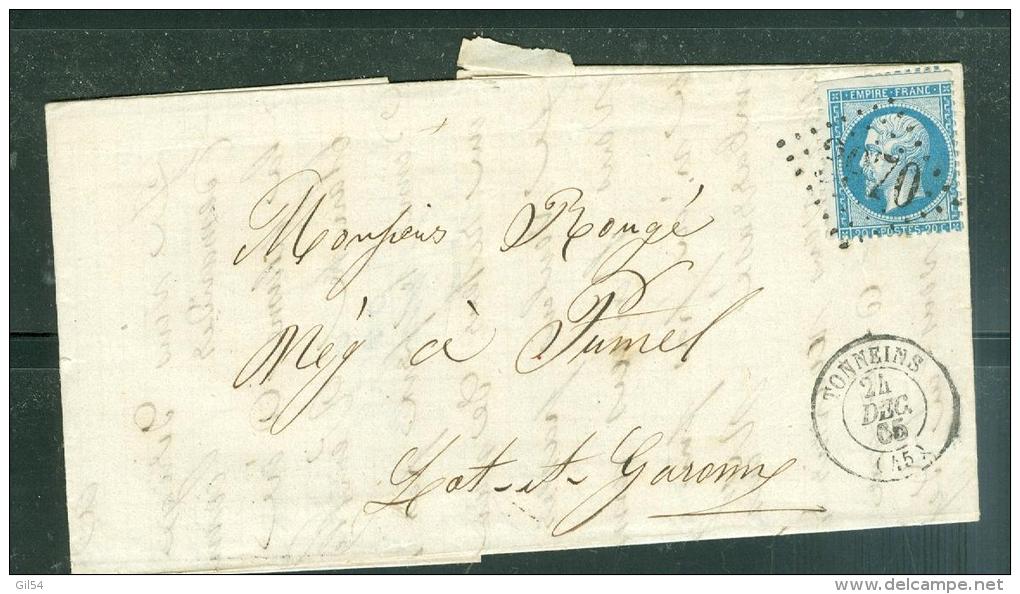 EMPIRE·FRANC·
70
20C·POSTES·20C
Monsieur Rougé
Nég à Fumel
Lot-et-Garonne
TONNEINS
24
DEC.
65
(45)
Gil54
www.delcampe.net